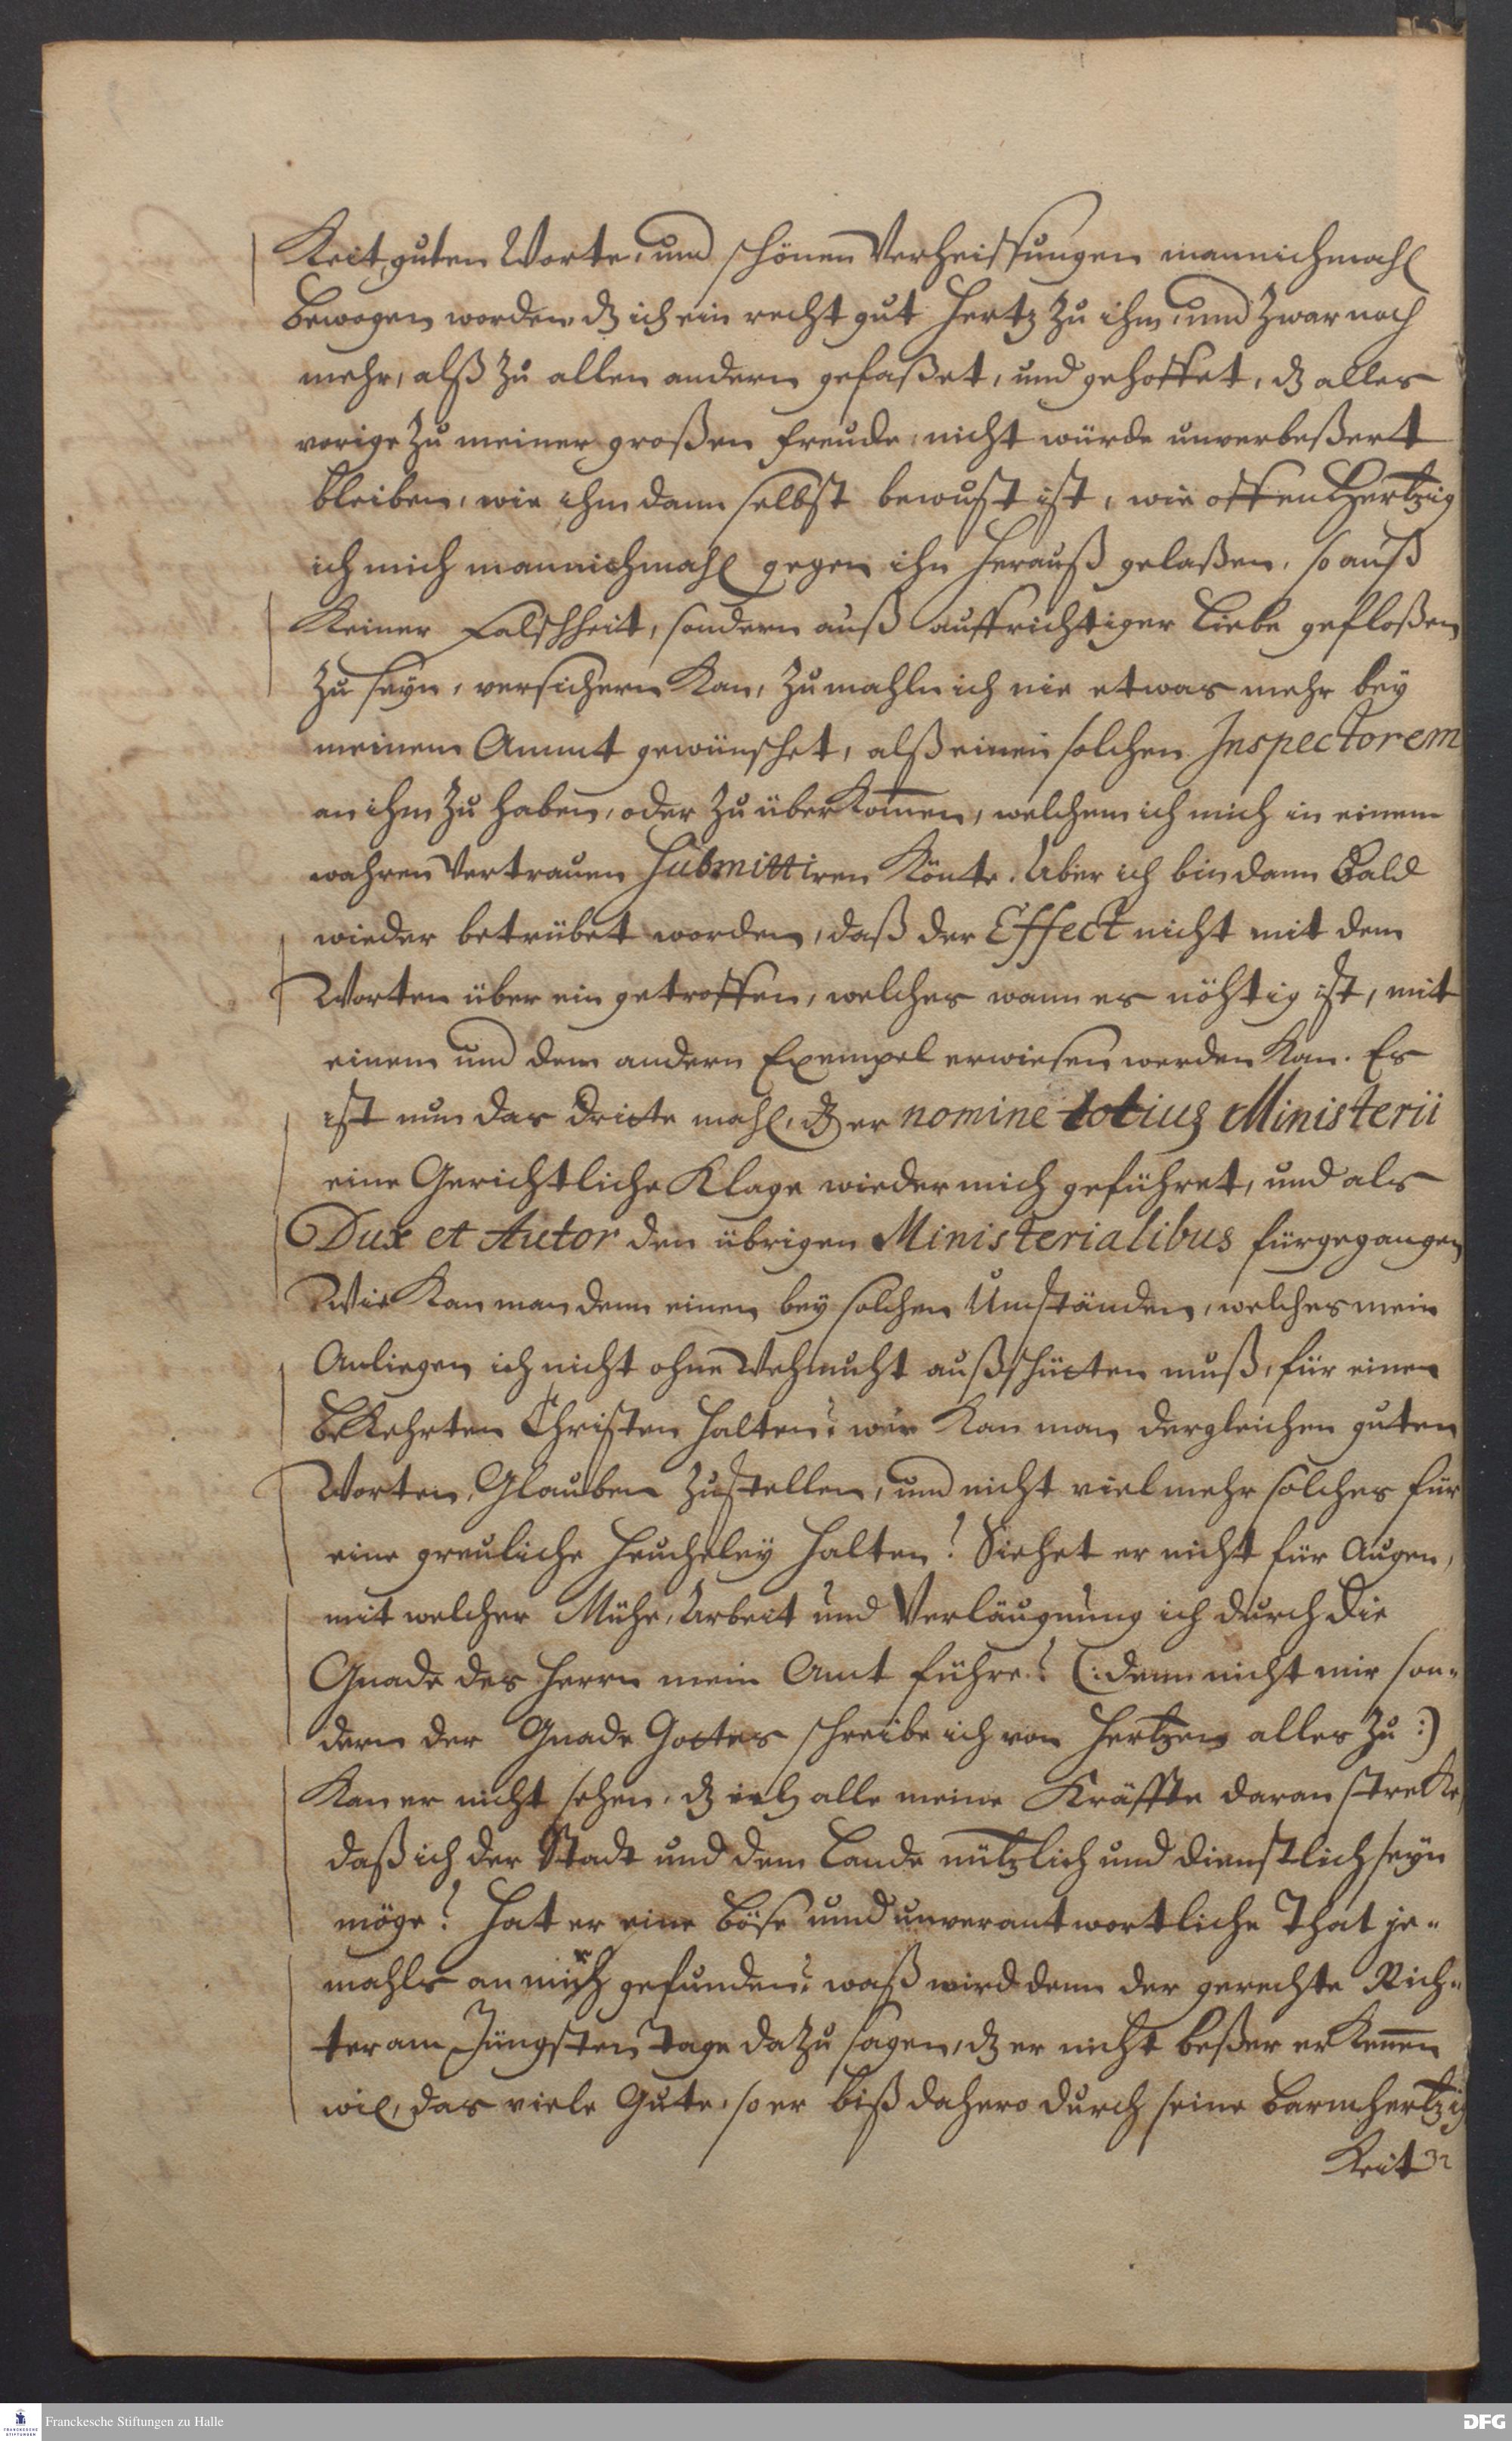 Keit, guten Worte, und schönen Verheissungen mannichmahl
bewogen worden, dz ich ein recht gut Hertz zu ihm, und zwar noch
mehr, alß zu allen andern gefaßet, und gehoffet, dz alles
vorige zu meiner großen Freude, nicht würde unverbeßert
bleiben, wie ihm dann selbst bewust ist, wie offenhertzig
ich mich mannichmahl gegen ihn herauß gelaßen, so auß
Keiner Falschheit, sondern auß auffrichtiger Liebe gefloßen
zu seyn, versichern Kan, zumahln ich nie etwas mehr bey
meinem Ammt gewünschet, alß einen solchen Inspectorem
an ihm zu haben, oder zu überKom̄en, welchem ich mich in einem
wahren Vertrauen submittiren Könte. Aber ich bin dann bald
wieder betrübet worden, daß der Effect nicht mit dem
Worten über ein getroffen, welches wann es nöhtig ist, mit
einem und dem andern Exempel erwiesen werden Kan. Es
ist nun das dritte mahl, dz er nomine totius Ministerii
eine Gerichtliche Klage wieder mich geführet, und als
Dux et Autor den übrigen Ministerialibus fürgegangen
Wie Kan man denn einen bey solchen Umständen, welches mein
Anliegen ich nicht ohne Wehmuht außschütten muß, für einen
beKehrten Christen halten? wie Kan man dergleichen guten
Worten, Glauben zustellen, und nicht vielmehr solches für
eine greuliche Heucheley halten? Siehet er nicht für Augen,
mit welcher Mühe, Arbeit und Verläugnung ich durch die
Gnade des Herrn mein Amt führe? (: denn nicht mir son-
dern der Gnade Gottes schreibe ich von Hertzen alles zu :)
Kan er nicht sehen, dz ich alle meine Kräffte daran streKe,
daß ich der Stadt und dem Lande nützlich und dienstlich seyn
möge? Hat er eine böse und unverantwortliche That je-
mahls an mir gefunden? waß wird denn der gerechte Rich-
ter am Jüngsten Tage dazu sagen, dz er nicht beßer erKen̄en
wil, das viele Gute, so er biß dahero durch seine barmhertzig
Keit
Franckesche Stiftungen zu Halle
DFG